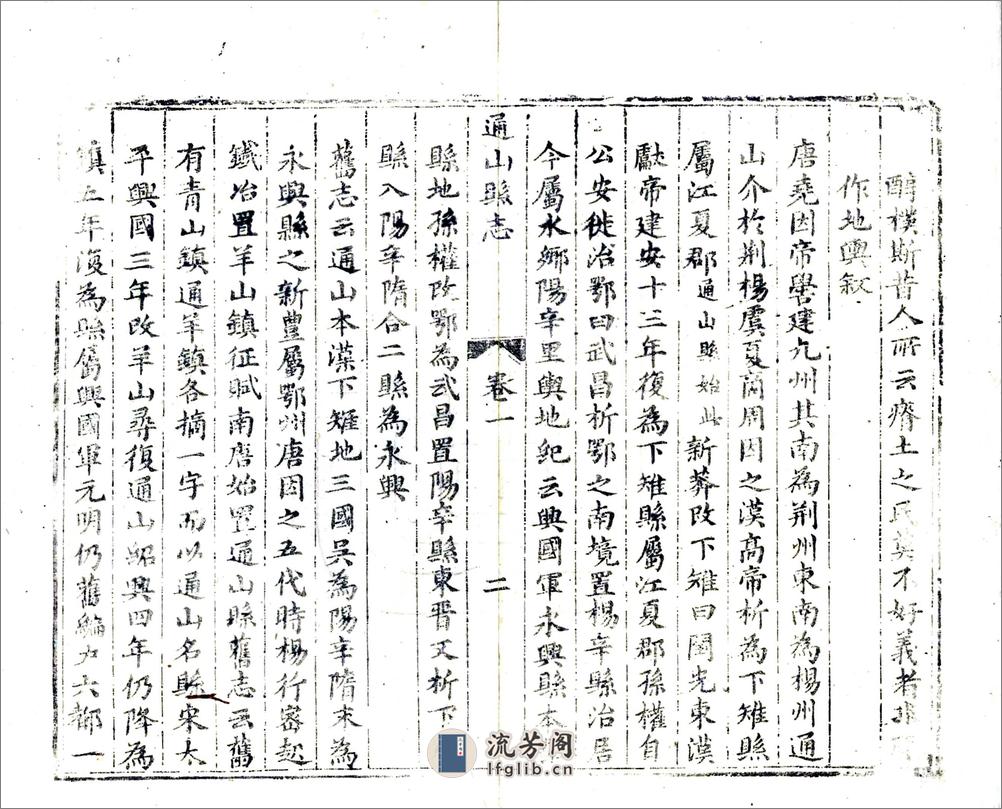 醇樸斯昔人所云瘠土之民莫不好義者
作地輿叙
唐堯因帝嚳建九州其南為荆州東南為楊州通
山介於荆楊虞夏商周因之漢高帝析為下雉縣
屬江夏郡通山縣始此新莽改下雉曰閏光東漢
獻帝建安十三年復為下雉縣屬江夏郡孫權自
公安徙治鄂曰武昌析鄂之南境置楊辛縣治居
今屬水鄉陽辛里輿地紀云興國軍永興縣本
通山縣志
卷一
二
縣地孫權改鄂為武昌置陽辛縣東晋又析下
縣入陽辛隋合二縣為永興
舊志云通山本漢下雉地三國吳為陽辛隋末為
永興縣之新豐屬鄂州唐因之五代時楊行密起
鐵冶置羊山鎮征賦南唐始置通山縣舊志云舊
有青山鎮通羊鎮各摘一字而以通山名縣宋太
平興國三年改羊山尋復通山紹興四年仍降為
鎮五年復為縣屬興國軍元明仍舊編户六都一
流芳阁
lfglib.cn